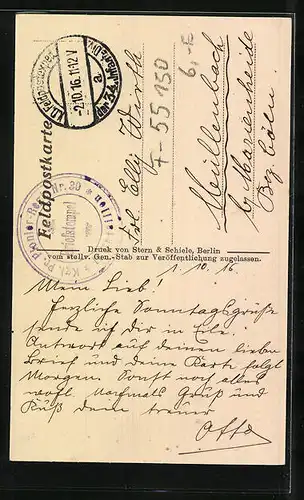 Feldpostkarte
K.D. Feldpostexped.
-2.10.16.11-12V
a
der 34. Infant. Div.
Kgl. Pr. Pionier-Regt. Nr. 30
Briefstempel
Frl. Elli Wirth
7-55150
6,-E
Müllenbach
b/ Marienheide
Bez. Cöln.
Druck von Stern & Schiele, Berlin
vom stellv. Gen.-Stab zur Veröffentlichung zugelassen.
1. 10. 16
Mein Lieb!
Herzliche Sonntagsgrüße
sende ich Dir in Eile.
Antwort auf deinen lieben
Brief und deine Karte folgt
Morgen. Sonst noch alles
wohl. Nochmals Gruß und
Kuß Dein treuer
Otto